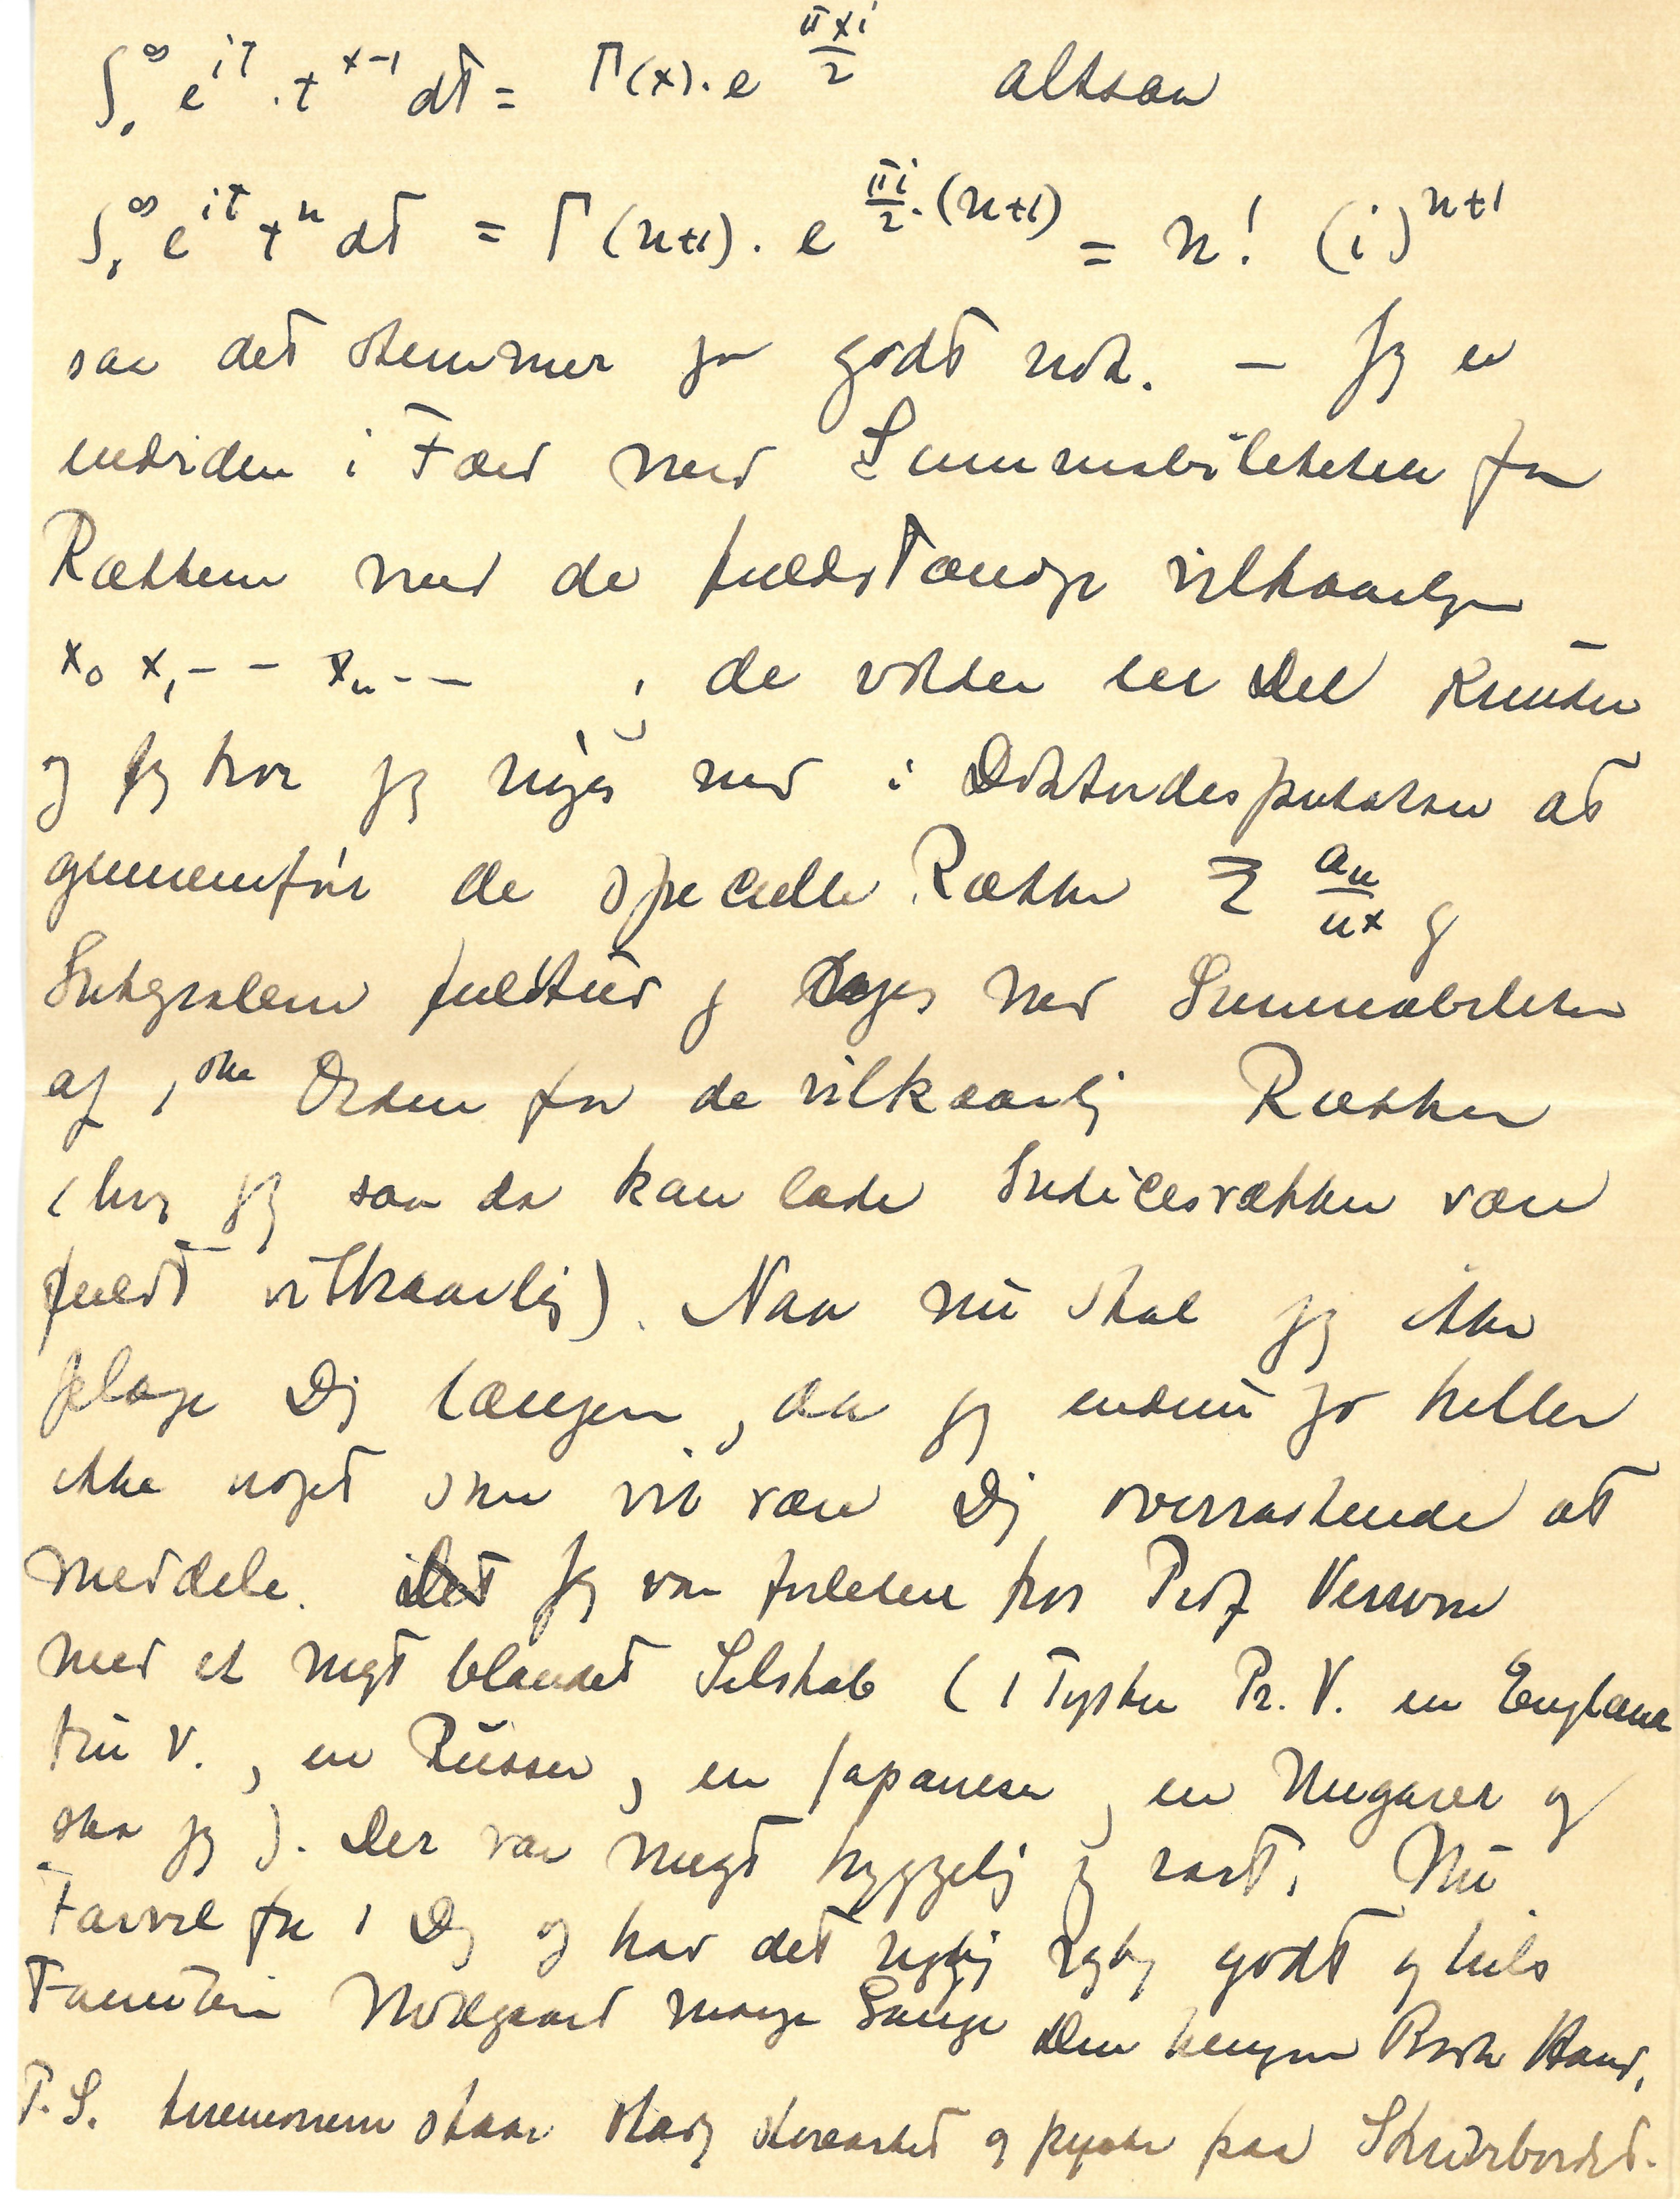 ∫₀^∞ e^{it} · t^{x-1} dt = Γ(x) · e^{πxi/2} altsaa
∫₀^∞ e^{it} t^n dt = Γ(n+1) · e^{πi/2 · (n+1)} = n! (i)^{n+1}
saa det stemmer jo godt nok. – Jeg er
endviden i Færd med Summabiliteten for
Rækken med de fuldstændige vilkaarlige
x₀ x₁ - - xₙ - - , de volder en Del Kunster
og jeg tror jeg nøjes med i Doktordisputatsen at
gennemføre de specielle Rækker Σ aₙ/nˣ og
Integralerne fuldtud og nøjes med Summabiliteten
af 1ste Orden for de vilkaarlig Rækker
(hvor jeg saa da kan lade Indicesrækken være
fuldt vilkaarlig). Naa nu skal jeg ikke
plage Dig længere, da jeg endnu jo heller
ikke noget som vil være Dig overraskende at
meddele. Jeg var forleden hos Prof Verworn
med et meget blandet Selskab (1 Tysker Pr. V. en Englænd
fru V., en Russer, en Japaneser, en Ungarer og
saa jeg). Der var meget hyggelig og rart. Nu
Farvel for i Dag og hav det rigtig rigtig godt og hils
Familien Nørlgaard mange Gange Din hengivne Broder Harald.
P.S. staar stadig og pynter paa Skrivebordet.